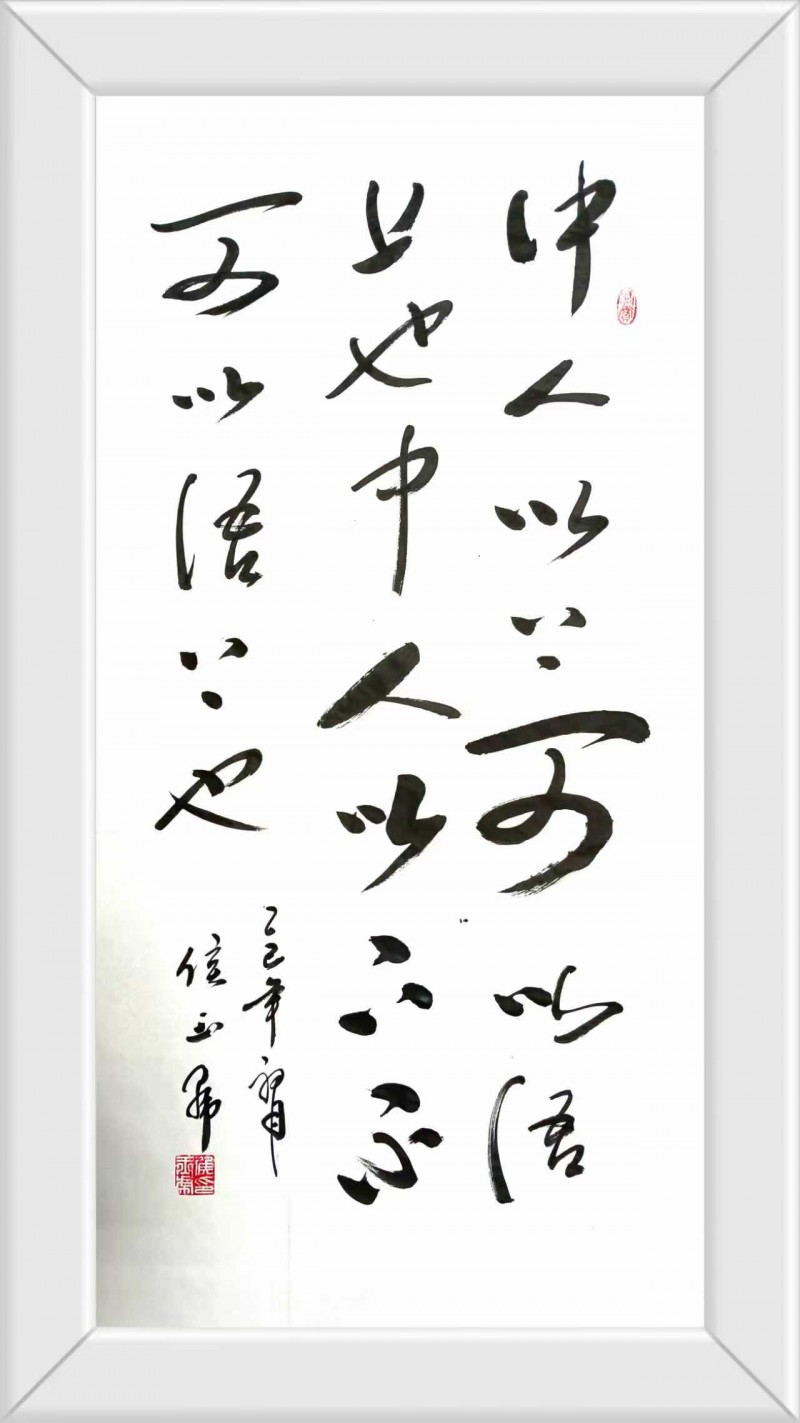 中人以上可以语
上也中人以下不
可以语上也
乙巳年